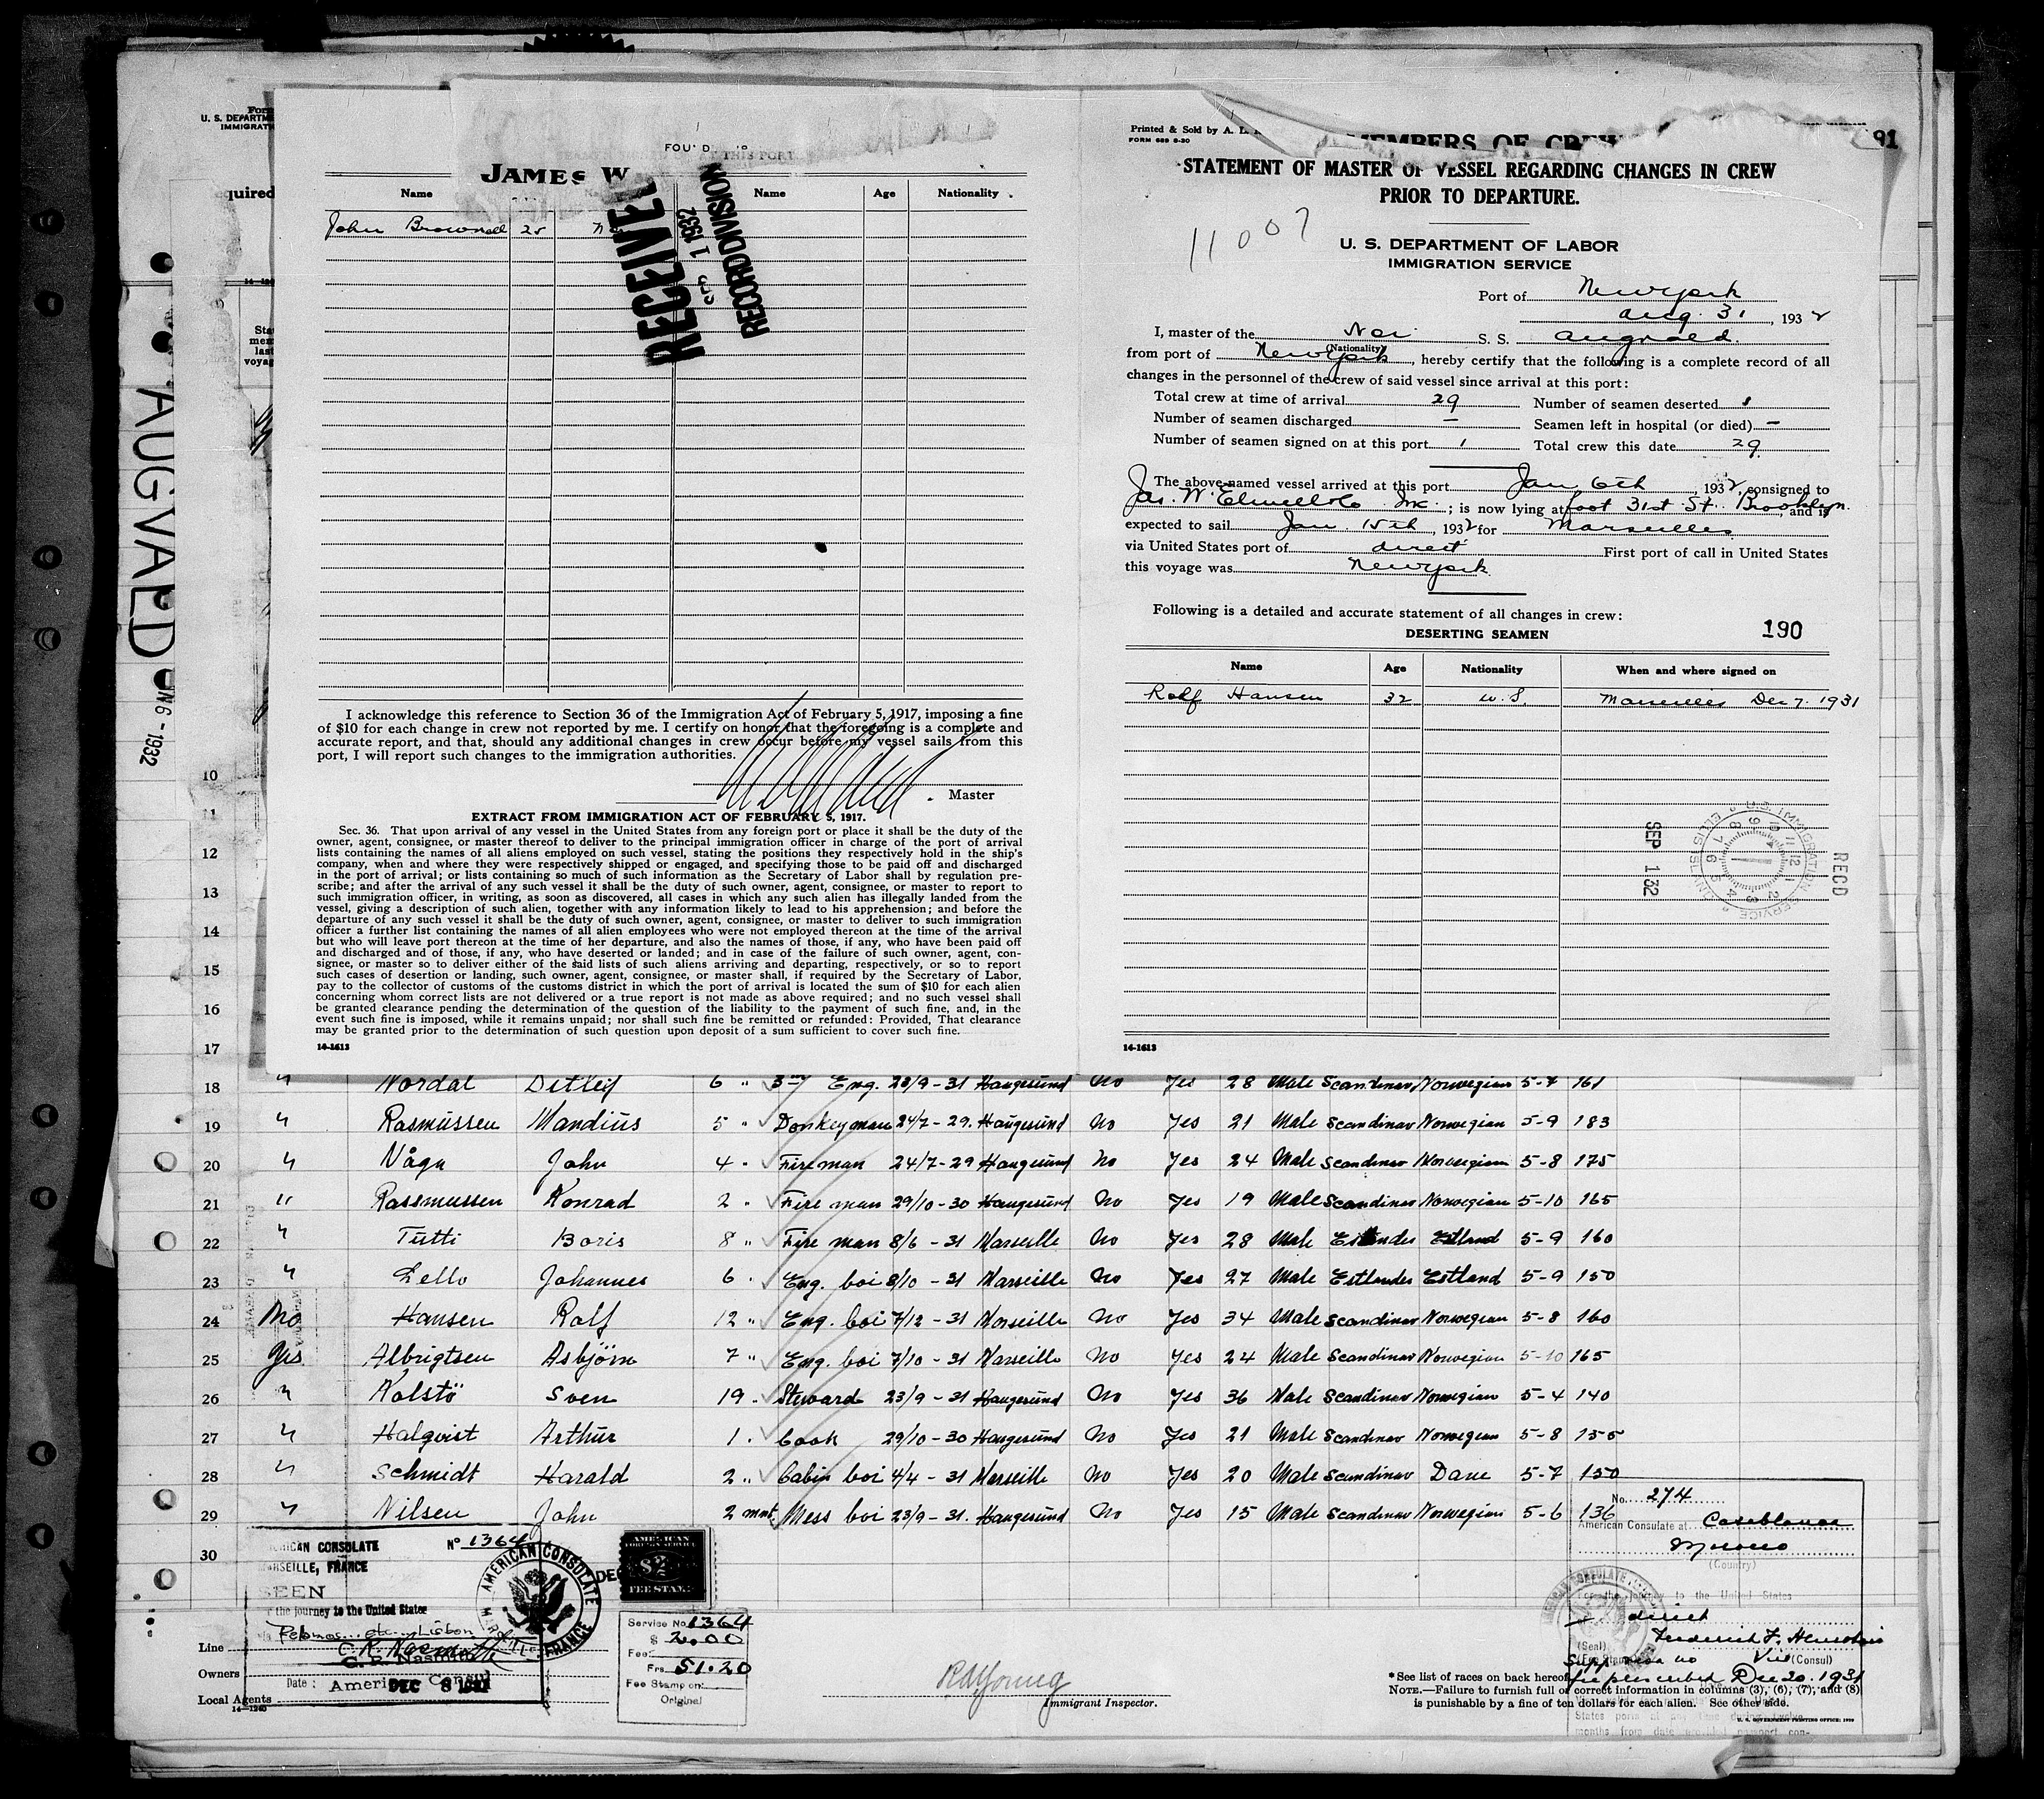 Form
U. S. DEPARTM
IMMIGRAT
equired
Sta
men
last
voyag
AUGVALD
N 6 - 1932
JAMES W
Name
Name Age Nationality
John Brownell 25
RECEIVE
SEP 1 1932
RECORD DIVISION
I acknowledge this reference to Section 36 of the Immigration Act of February 5, 1917, imposing a fine
of $10 for each change in crew not reported by me. I certify on honor that the foregoing is a complete and
accurate report, and that, should any additional changes in crew occur before my vessel sails from this
port, I will report such changes to the immigration authorities.
Master
EXTRACT FROM IMMIGRATION ACT OF FEBRUARY 5, 1917.
Sec. 36. That upon arrival of any vessel in the United States from any foreign port or place it shall be the duty of the
owner, agent, consignee, or master thereof to deliver to the principal immigration officer in charge of the port of arrival
lists containing the names of all aliens employed on such vessel, stating the positions they respectively hold in the ship's
company, when and where they were respectively shipped or engaged, and specifying those to be paid off and discharged
in the port of arrival; or lists containing so much of such information as the Secretary of Labor shall by regulation pre-
scribe; and after the arrival of any such vessel it shall be the duty of such owner, agent, consignee, or master to report to
such immigration officer, in writing, as soon as discovered, all cases in which any such alien has illegally landed from the
vessel, giving a description of such alien, together with any information likely to lead to his apprehension; and before the
departure of any such vessel it shall be the duty of such owner, agent, consignee, or master to deliver to such immigration
officer a further list containing the names of all alien employees who were not employed thereon at the time of the arrival
but who will leave port thereon at the time of her departure, and also the names of those, if any, who have been paid off
and discharged and of those, if any, who have deserted or landed; and in case of the failure of such owner, agent, con-
signee, or master so to deliver either of the said lists of such aliens arriving and departing, respectively, or so to report
such cases of desertion or landing, such owner, agent, consignee, or master shall, if required by the Secretary of Labor,
pay to the collector of customs of the customs district in which the port of arrival is located the sum of $10 for each alien
concerning whom correct lists are not delivered or a true report is not made as above required; and no such vessel shall
be granted clearance pending the determination of the question of the liability to the payment of such fine, and, in the
event such fine is imposed, while it remains unpaid; nor shall such fine be remitted or refunded: Provided, That clearance
may be granted prior to the determination of such question upon deposit of a sum sufficient to cover such fine.
14-1613
Printed & Sold by A. L.
FORM 689 8-30
MEMBERS OF CREW
91
STATEMENT OF MASTER OF VESSEL REGARDING CHANGES IN CREW
PRIOR TO DEPARTURE.
11007
U. S. DEPARTMENT OF LABOR
IMMIGRATION SERVICE
Port of New York
Aug. 31, 1932
I, master of the Nor. S. S. Augvald.
(Nationality)
from port of New York, hereby certify that the following is a complete record of all
changes in the personnel of the crew of said vessel since arrival at this port:
Total crew at time of arrival 29 Number of seamen deserted 1
Number of seamen discharged – Seamen left in hospital (or died) –
Number of seamen signed on at this port 1 Total crew this date 29
The above-named vessel arrived at this port Jan 6th, 1932, consigned to
Jas. W. Elwell & Co Inc.; is now lying at foot 31st St. Brooklyn, and is
expected to sail Jan 15th, 1932 for Marseilles
via United States port of direct First port of call in United States
this voyage was New York
Following is a detailed and accurate statement of all changes in crew:
DESERTING SEAMEN 190
Name Age Nationality When and where signed on
Rolf Hansen 32 U.S. Marseilles Dec 7. 1931
RECD
U.S. IMMIGRATION SERVICE ELLIS ISLAND
SEP 1 32
14-1613
10
11
12
13
14
15
16
17
18 " Nordal Ditlef 6 " 3rd Eng. 23/9 - 31 Haugesund No Yes 28 Male Scandinav Norwegian 5-7 161
19 " Rasmussen Mandius 5 " Donkeyman 24/7 - 29. Haugesund No Yes 21 Male Scandinav Norwegian 5-9 183
20 " Vågn John 4 " Fireman 24/7-29 Haugesund No Yes 24 Male Scandinav Norwegian 5-8 175
21 " Rassmussen Konrad 2 " Fire man 29/10 - 30 Haugesund No Yes 19 Male Scandinav Norwegian 5-10 165
22 " Tütti Boris 8 " Fire man 8/6 - 31 Marseille No Yes 28 Male Estlander Estland 5-9 160
23 " Lello Johannes 6 " Eng. boi 8/10 - 31 Marseille No Yes 27 Male Estlander Estland 5-9 150
24 No Hansen Rolf 12 " Eng. boi 7/12 - 31 Marseille No Yes 34 Male Scandinav Norwegian 5-8 160
25 Yes Albrigtsen Asbjörn 7 " Eng. boi 7/10 - 31 Marseille No Yes 24 Male Scandinav Norwegian 5-10 165
26 " Kolstö Sven 19 " Steward 23/9 - 31 Haugesund No Yes 36 Male Scandinav Norwegian 5-4 140
27 " Halqvist Arthur 1 " Cook 29/10 - 30 Haugesund No Yes 21 Male Scandinav Norwegian 5-8 155
28 " Schmidt Harald 2 " Cabin boi 4/4 - 31 Marseille No Yes 20 Male Scandinav Dane 5-7 150
29 " Nilsen John 2 mnt. Mess boi 23/9 - 31. Haugesund No Yes 15 Male Scandinav Norwegian 5-6 136
30
RICAN CONSULATE No 1364
ARSEILLE, FRANCE
SEEN
the journey to the United States
etc. Lisbon
C. R. Nasmith
Date : American Consul
DEC 8 1931
AMERICAN CONSULATE MARSEILLE, FRANCE
DEC
AMERICAN
FOREIGN SERVICE
$2
FEE STAMP
Service No. 1364
$ 2.00
Fee:
Frs 51.20
Fee Stamp on:
Original
Line
Owners
Local Agents
14-1240
R A Young
Immigrant Inspector.
No. 274
American Consulate at Casablanca
Morocco
(Country)
For the journey to the United States
direct
(Seal)
Vice (Consul)
Supp. visa no
fee prescribed Dec 20. 1931
*See list of races on back hereof
NOTE.—Failure to furnish full or correct information in columns (3), (6), (7), and (8)
is punishable by a fine of ten dollars for each alien. See other side.
U. S. GOVERNMENT PRINTING OFFICE: 1930
States port at any time during twelve
months from date